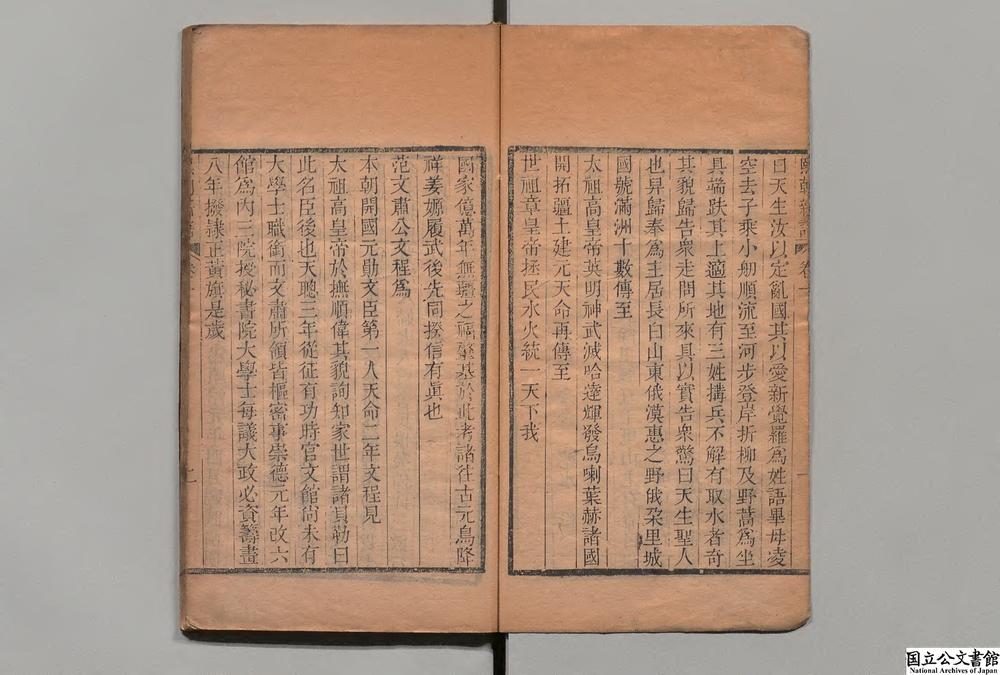 熙朝新語 卷一 一
曰天生汝以定亂國其以愛新覺羅爲姓語畢母凌
空去子乘小舠順流至河步登岸折柳及野蒿爲坐
具端趺其上適其地有三姓搆兵不解有取水者奇
其貌歸告衆走問所來具以實告衆驚曰天生聖人
也舁歸奉爲主居長白山東俄漠惠之野俄朶里城
國號滿洲十數傳至
太祖高皇帝英明神武滅哈達輝發烏喇葉赫諸國
開拓疆土建元天命再傳至
世祖章皇帝拯民水火統一天下我
國家億萬年無疆之福肇基於此考諸往古元鳥降
祥姜嫄履武後先同揆信有眞也
范文肅公文程爲
本朝開國元勛文臣第一人天命二年文程見
太祖高皇帝於撫順偉其貌詢知家世謂諸貝勒曰
此名臣後也天聰三年從征有功時官文館尙未有
大學士職銜而文肅所領皆樞密事崇德元年改六
館爲內三院授秘書院大學士每議大政必資籌畫
八年撥隸正黃旗是歲
九
国立公文書館
National Archives of Japan